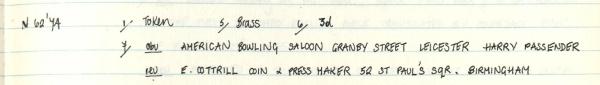 N 62 '74 1/ Token 5/ Brass 6/ 3d
7/ obv AMERICAN BOWLING SALOON GRANBY STREET LEICESTER HARRY PASSENDER
rev E. COTTRILL COIN & PRESS MAKER 52 ST PAUL'S SQR. BIRMINGHAM